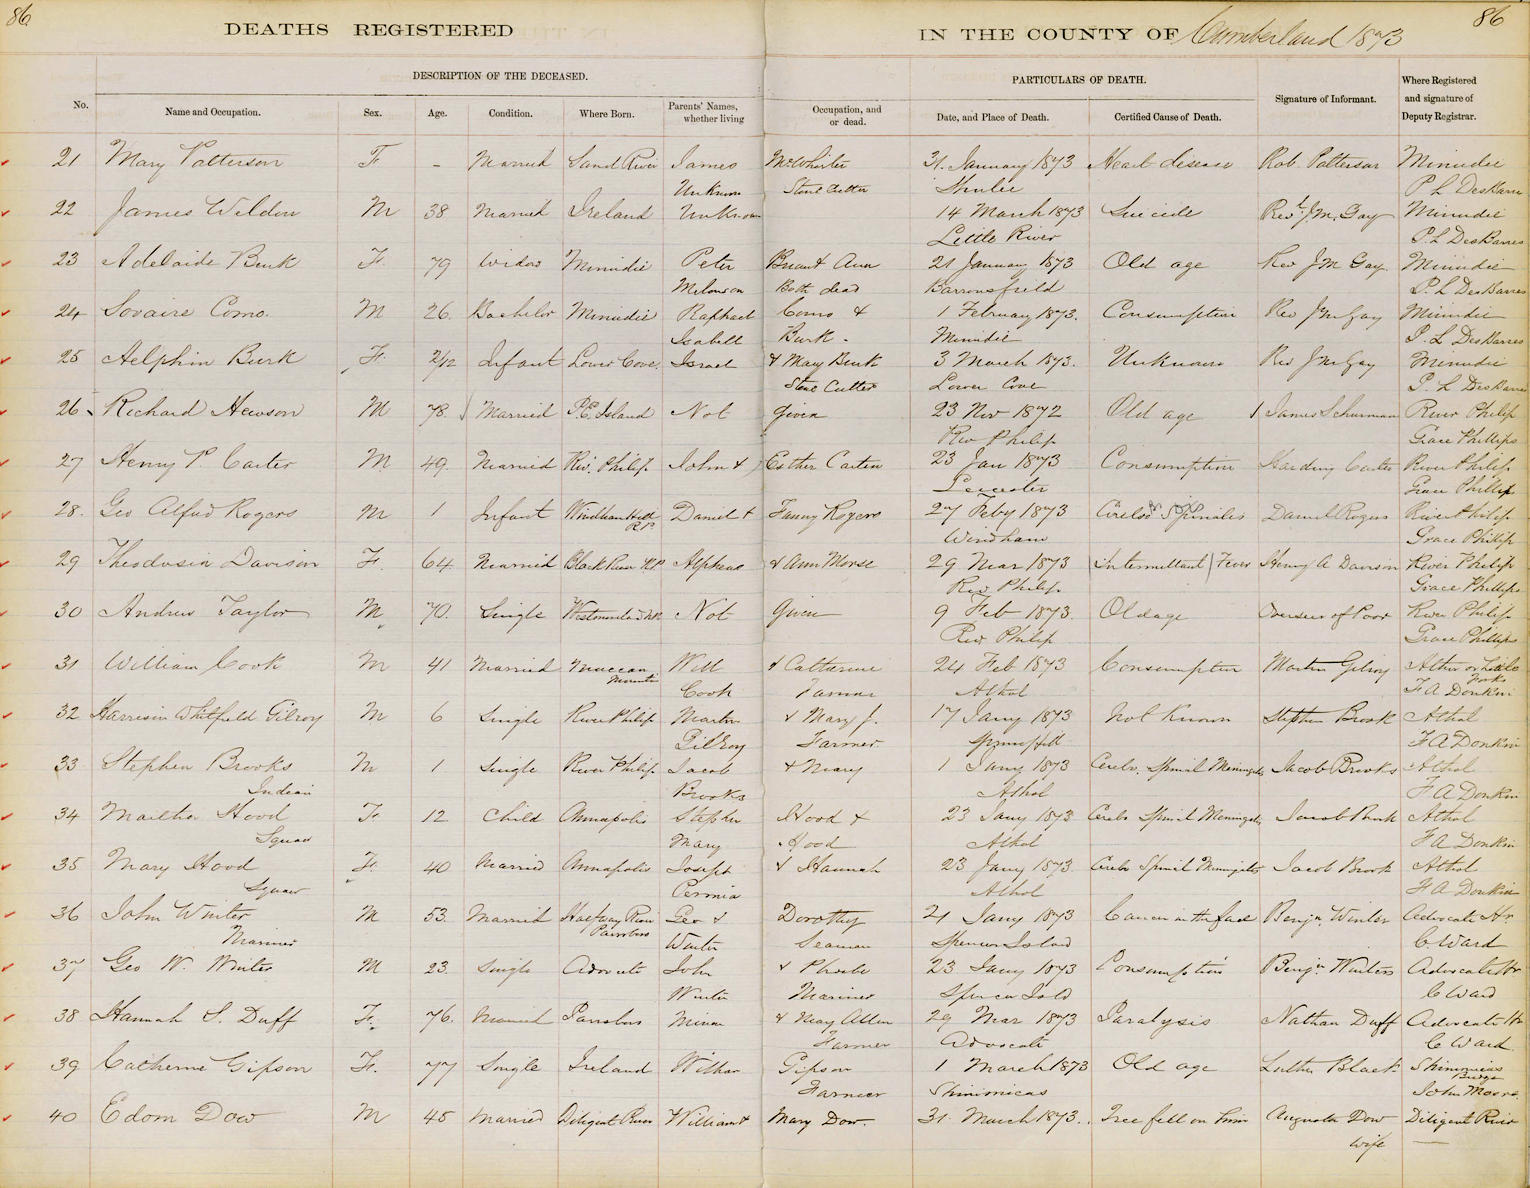 86
86
DEATHS REGISTERED IN THE COUNTY OF Cumberland 1873
DESCRIPTION OF THE DECEASED.
PARTICULARS OF DEATH.
No.
Name and Occupation.
Sex.
Age.
Condition.
Where Born.
Parents' Names, whether living
Occupation, and or dead.
Date, and Place of Death.
Certified Cause of Death.
Signature of Informant.
Where Registered and signature of Deputy Registrar.
21 Mary Patterson F - Married Sand River James McWhirter 31. January 1873 Heart disease Rob. Patterson Minudie
Unknown Stone Cutter Shulee P L DesBarres
22 James Weldon M 38 Married Ireland Unknown 14 March 1873 Suicide Revt. J.M. Gay Minudie
Little River P. L DesBarres
23 Adelaide Burk F. 79 Widow Minudie Peter 21 January 1873 Old age Rev J M Gay Minudie
Both dead Barronsfield P. L DesBarres
24 Sovaire Como. M 26. Bachelor Minudie Raphael Como & 1 February 1873. Consumption Rev J M Gay Minudie
Isabell Burk. Minudie P. L DesBarres
25 Aelphin Burk F. 2/12 Infant Lower Cove. Israel & Mary Burk 3 March 1873. Unknown Rev J M Gay Minudie
Stone Cutter Lower Cove P. L DesBarres
26 Richard Hewson M 78. Married P.E. Island Not given 23 Nov 1872 Old age James Schurman River Philip
Riv Philip Grace Phillips
27 Henry P. Carter M. 49. Married Riv. Philip John & Esther Carter 23 Jan 1873 Consumption Harding Carter River Philip
Leicester Grace Phillips
28. Geo Alfred Rogers M 1 Infant Windham Hill Daniel & Fanny Rogers 27 Feby 1873 Daniel Rogers River Philip
R.P. Windham Grace Phillips
29 Theodosia Davison F. 64. Married Black River R.P. Alpheus & Ann Morse 29 Mar 1873 Intermittant Fever Henry A Davison River Philip
Riv Philip Grace Phillips
30 Andrew Taylor M. 70. Single Not Given 9 Feb 1873. Old age Overseer of Poor River Philip
Riv Philip Grace Phillips
31 William Cook M 41 Married Maccan Will & Catherine 24 Feb 1873 Consumption Martin Gilroy Forks
Cook Farmer Athol F A Donkin
32 Harrison Whitfield Gilroy M 6 Single River Philip Martin & Mary J. 17 Jany 1873 Not Known Stephen Brook Athol
Gilroy Farmer Spring Hill F A Donkin
33 Stephen Brooks M 1 Single River Philip Jacob & Mary 1 Jany 1873 Cerebr. Spinal Meningitis Jacob Brooks Athol
Indian Brooks Athol F A Donkin
34 Martha Hood F 12 Child Annapolis Stephen Hood & 23 Jany 1873 Cerebr Spinal Meningitis Jacob Brook Athol
Squaw Mary Hood Athol F A Donkin
35 Mary Hood F. 40 Married Annapolis Joseph & Hannah 23 Jany 1873 Cerebr Spinal Meningitis Jacob Brook Athol
Squaw Athol F A Donkin
36 John Winter M 53. Married Halfway River Geo & Dorothy 21 Jany 1873 Cancer in the face Benjn. Winter Advocate Hr.
Mariner Parrsboro Winter Seaman Spencers Island C. Ward
37 Geo W. Winter M 23. Single Advocate John & Phoebe 23 Jany 1873 Consumption Benjn Winters Advocate Hr
Winter Mariner Spencer Isld C Ward
38 Hannah S. Duff F. 76. Married Parrsboro Minor & Mary Allen 29 Mar 1873 Paralysis Nathan Duff Advocate Hr
Farmer Advocate C Ward.
39 Catherine Gipson F. 77 Single Ireland William Gipson 1 March 1873 Old age Luther Black Shinimicas
Bridge
Farmer Shinimicas John Moore
40 Edom Dow M 45 Married Diligent River William & Mary Dow. 31. March 1873. Tree fell on him Augusta Dow Diligent River
wife